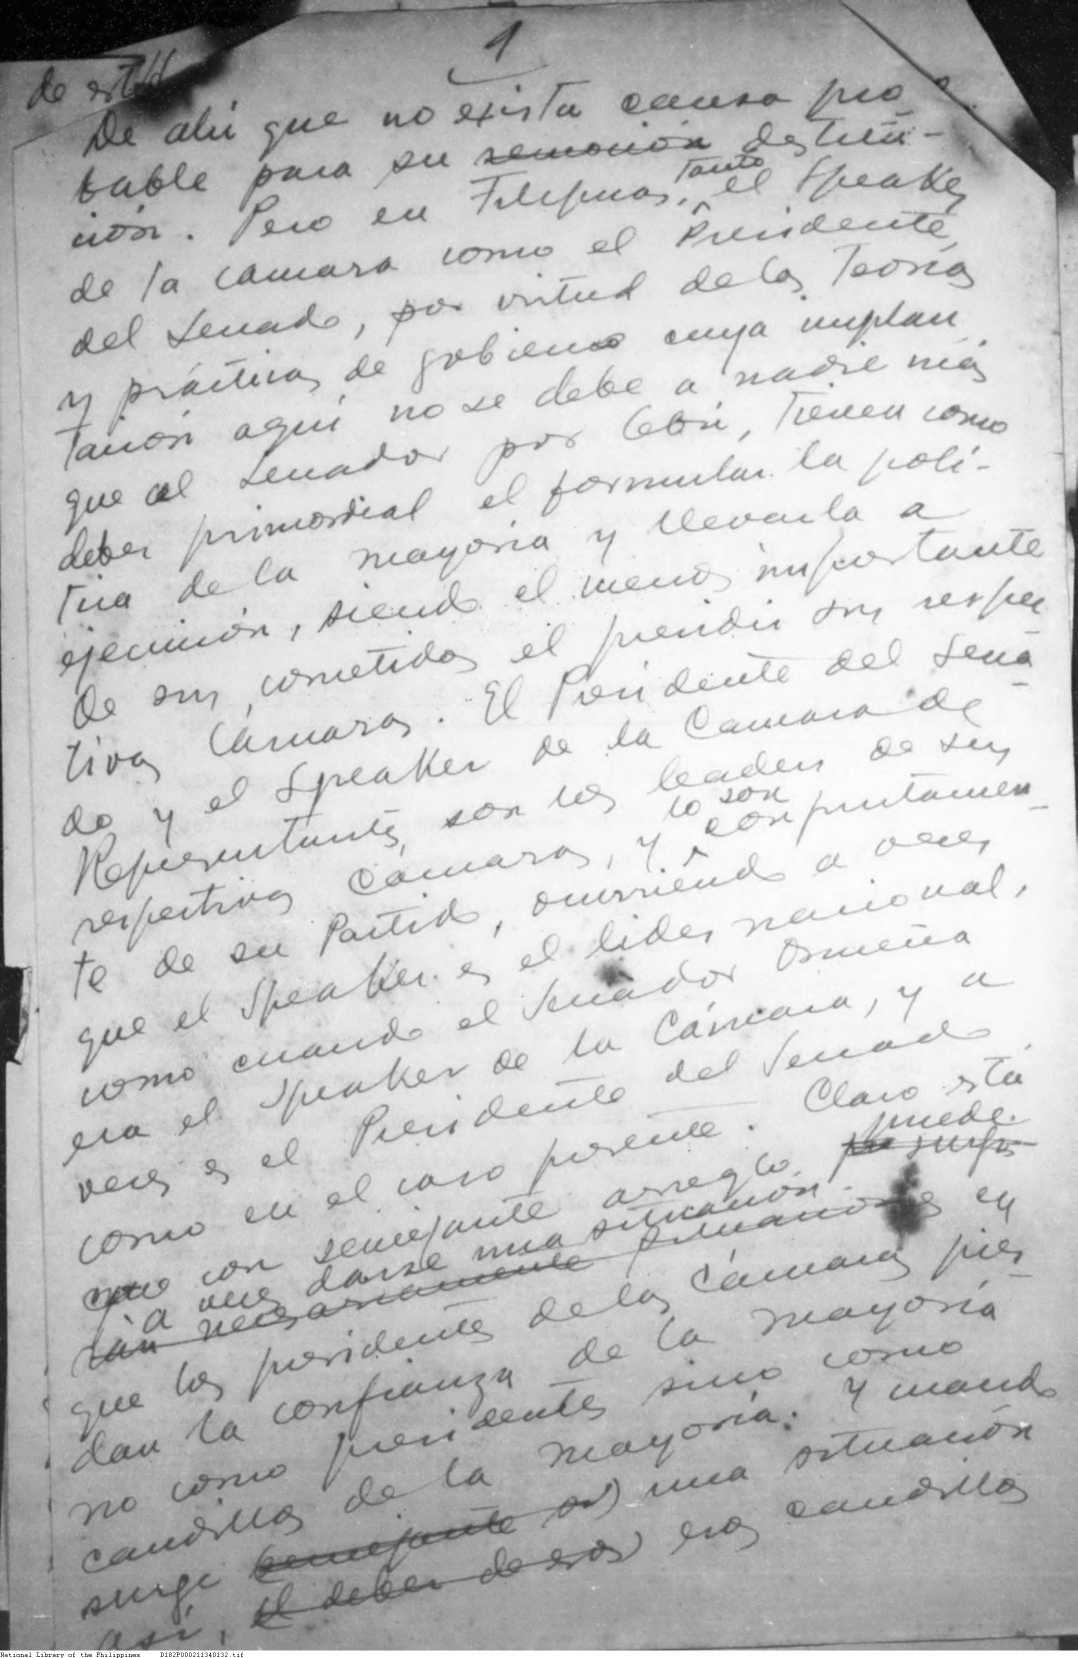 1
de esta
De ahí que no exista causa pro
bable para su remoción destitu-
ción. Pero en Filipinas, tanto el Speaker
de la Cámara como el Presidente
del Senado, por virtud de las teorías
y prácticas de gobierno cuya implan
tación aquí no se debe a nadie más
que al Senador por Cebú, tienen como
deber primordial el formular la polí-
tica de la mayoría y llevarla a
ejecución, siendo el menos importante
de sus cometidos el presidir sus respec
tivas Cámaras. El Presidente del Sena
do y el Speaker de la Cámara de
Representantes, son los leaders de sus
respectivas Cámaras, y lo son conjuntamen-
te de su Partido, ocurriendo a veces
que el Speaker es el lider nacional,
como cuando el Senador Osmeña
era el Speaker de la Cámara, y a
veces es el Presidente del Senado
como en el caso presente. Claro está
que con semejante arreglo, puede
surgir
a veces darse una situación
rían necesariamente situaciones en
que los presidentes de las Cámaras pier
dan la confianza de la mayoría
no como presidentes sino como
caudillos de la mayoría. Y cuando
surge semejante una situación
así, el deber de esos esos caudillos
National Library of the Philippines D182P000211340132.tif